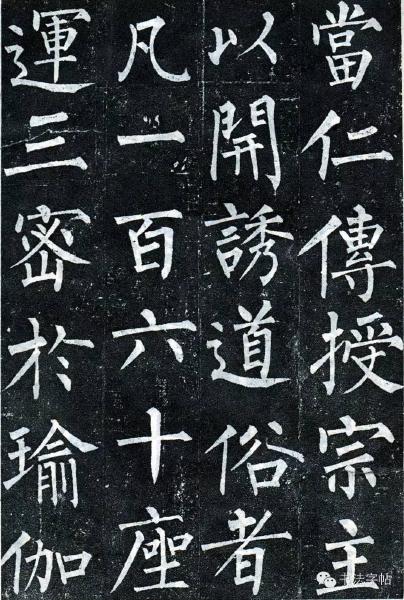 當仁傳授宗主
以開誘道俗者
凡一百六十座
運三密於瑜伽
书法字帖